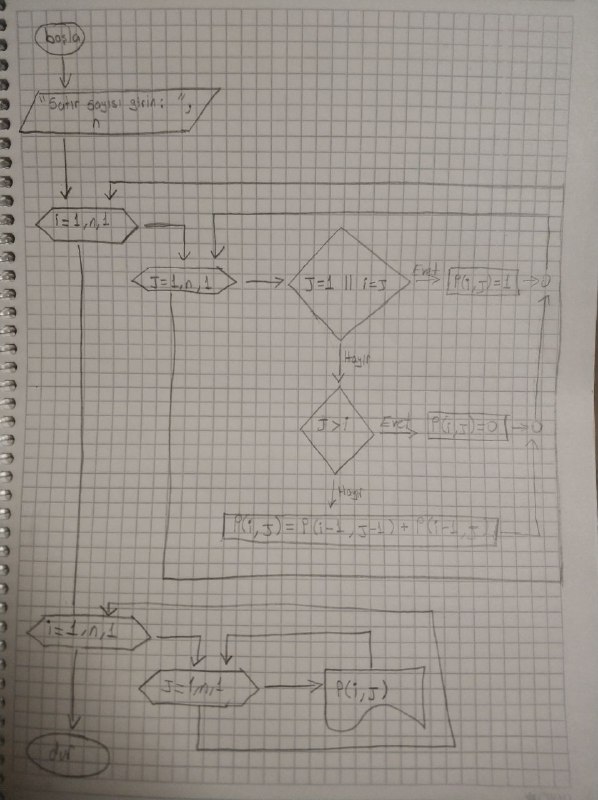 başla
"Satır Sayısı girin: ",
n
i=1,n,1
J=1,n,1
J=1 || i=J
Evet
P(i,J)=1
Hayır
J>i
Evet
P(i,J)=0
Hayır
P(i,J)=P(i-1,J-1)+P(i-1,J)
i=1,n,1
J=1,n,1
P(i,J)
dur